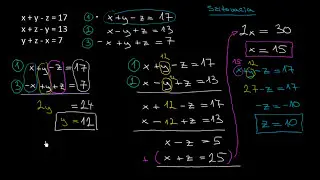 x + y - z = 17
x + z - y = 13
y + z - x = 7
① x+y-z = 17
② x-y+z = 13
③ -x+y+z = 7
① x+y-z = 17
③ -x+y+z = 7
2y = 24
y = 12
12
x+y-z = 17
12
x-y+z = 13
x+12-z = 17
x-12+z = 13
x-z = 5
+ (x+z = 25)
2x = 30
x = 15
15 12
x+y-z = 17
27-z = 17
-z = -10
z = 10